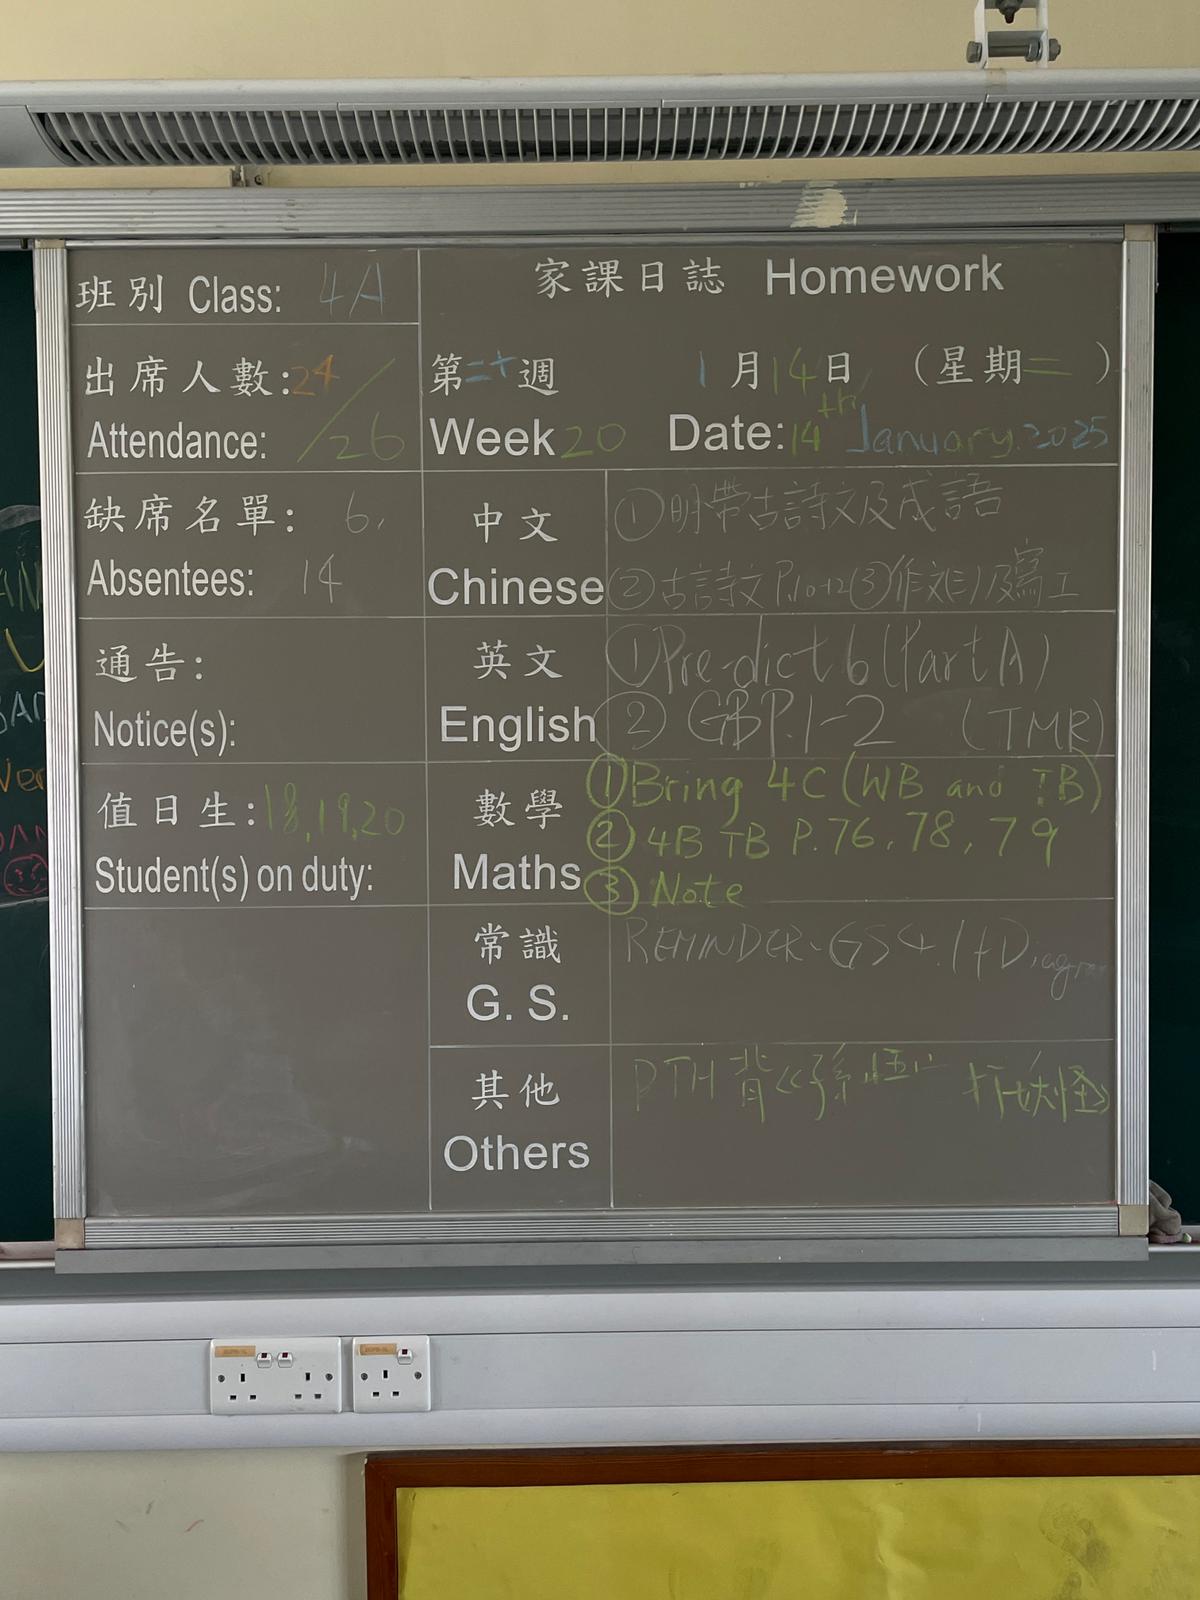 班別 Class: 4A
家課日誌 Homework
出席人數:24
Attendance: /26
第二十週 1月14日 (星期二)
Week 20 Date: 14th January. 2025
缺席名單: 6,
Absentees: 14
中文
Chinese
①明帶古詩文及成語
②古詩文P.10-12③作文
通告:
Notice(s):
英文
English
①Pre-dict 6 (Part A)
② GB P.1-2 (TMR)
值日生: 18,19,20
Student(s) on duty:
數學
Maths
①Bring 4C (WB and TB)
②4B TB P.76, 78, 79
③Note
常識
G. S.
REMINDER- GS 4.1+Diagram
其他
Others
PTH 背《孫悟空打妖怪》